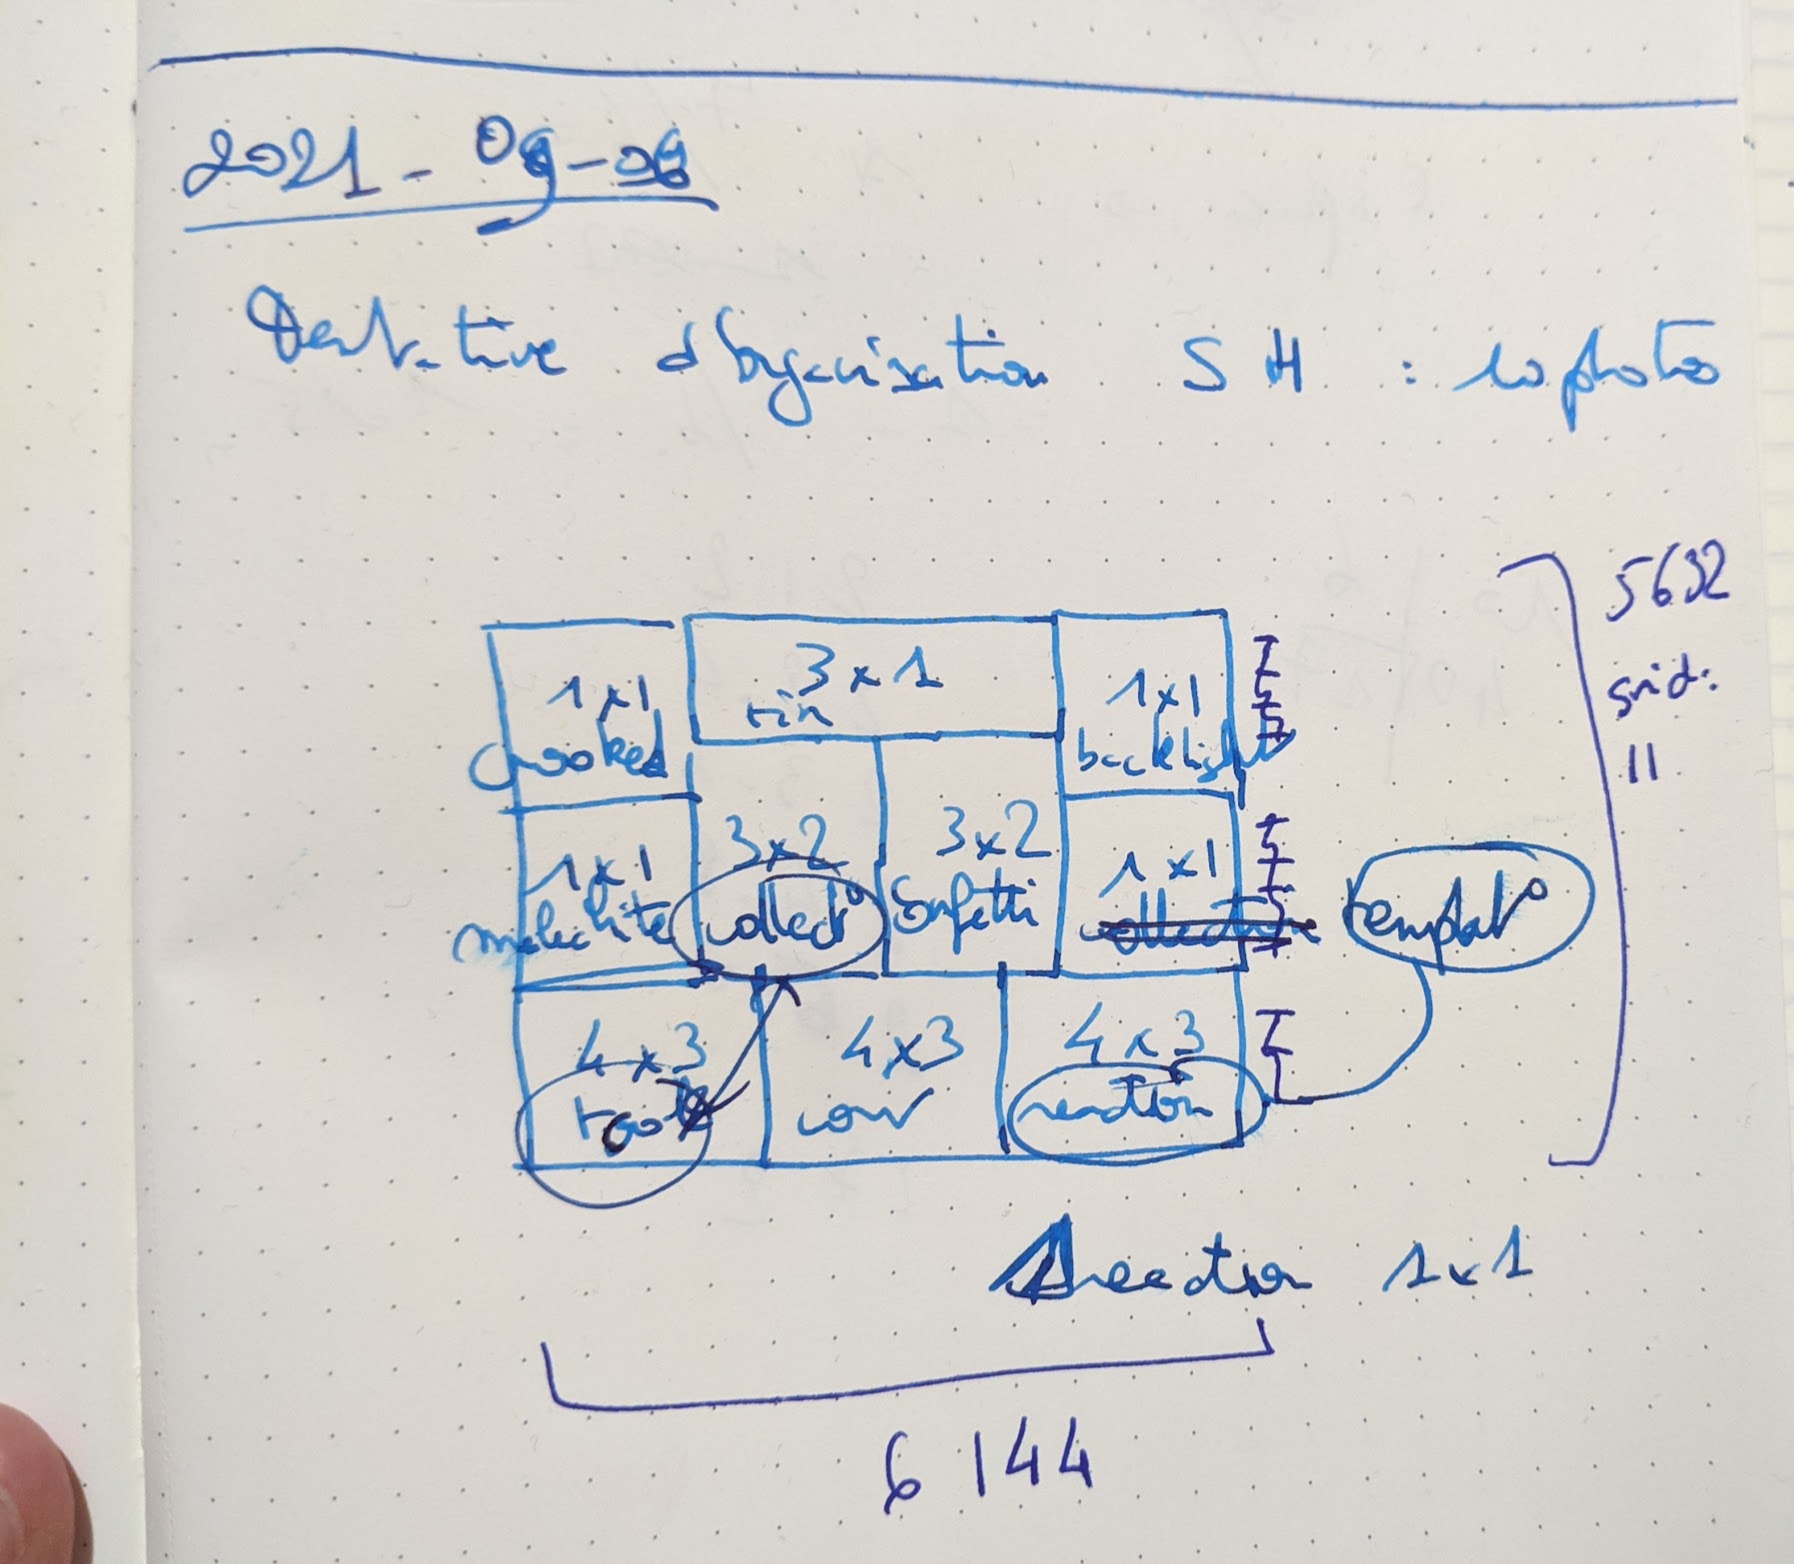 2021-09-06
Tentative d'organisation SH : 10 photos
5632
grid:
11
1x1
crooked
3x1
rin
1x1
backlight
1x1
malachite
3x2
collect°
3x2
confetti
1x1
collection
templat°
4x3
4x3
cour
4x3
reaction
reaction 1x1
6144